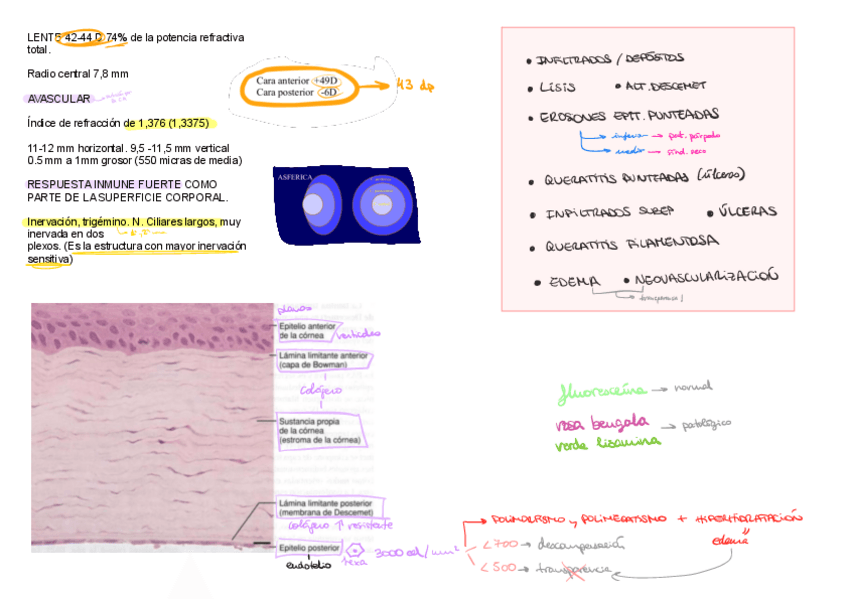 LENTE 42-44 D 74% de la potencia refractiva
total.
Radio central 7,8 mm
AVASCULAR
Índice de refracción de 1,376 (1,3375)
11-12 mm horizontal. 9,5 -11,5 mm vertical
0.5 mm a 1mm grosor (550 micras de media)
RESPUESTA INMUNE FUERTE COMO
PARTE DE LA SUPERFICIE CORPORAL.
Inervación, trigémino. N. Ciliares largos, muy
inervada en dos
plexos. (Es la estructura con mayor inervación
sensitiva)
Cara anterior +49D
Cara posterior -6D
43 dp
ASFERICA
• INFILTRADOS / DEPÓSITOS
• LISIS • ALT. DESCEMET
• EROSIONES EPIT. PUNTEADAS
inferior → pat. párpado
media → sínd. seco
• QUERATITIS PUNTEADAS (úlceras)
• INFILTRADOS SUBEP • ÚLCERAS
• QUERATITIS FILAMENTOSA
• EDEMA • NEOVASCULARIZACIÓN
planos
Epitelio anterior
de la córnea
Lámina limitante anterior
(capa de Bowman)
colágeno
Sustancia propia
de la córnea
(estroma de la córnea)
Lámina limitante posterior
(membrana de Descemet)
colágeno ↑ resistente
Epitelio posterior
hexa
endotelio
3000 cel/mm²
fluoresceína → normal
rosa bengala → patológico
verde lisamina
POLIMORFISMO y POLIMEGATISMO + HIPERHIDRATACIÓN
edema
<700 → descompensación
<500 → transparencia